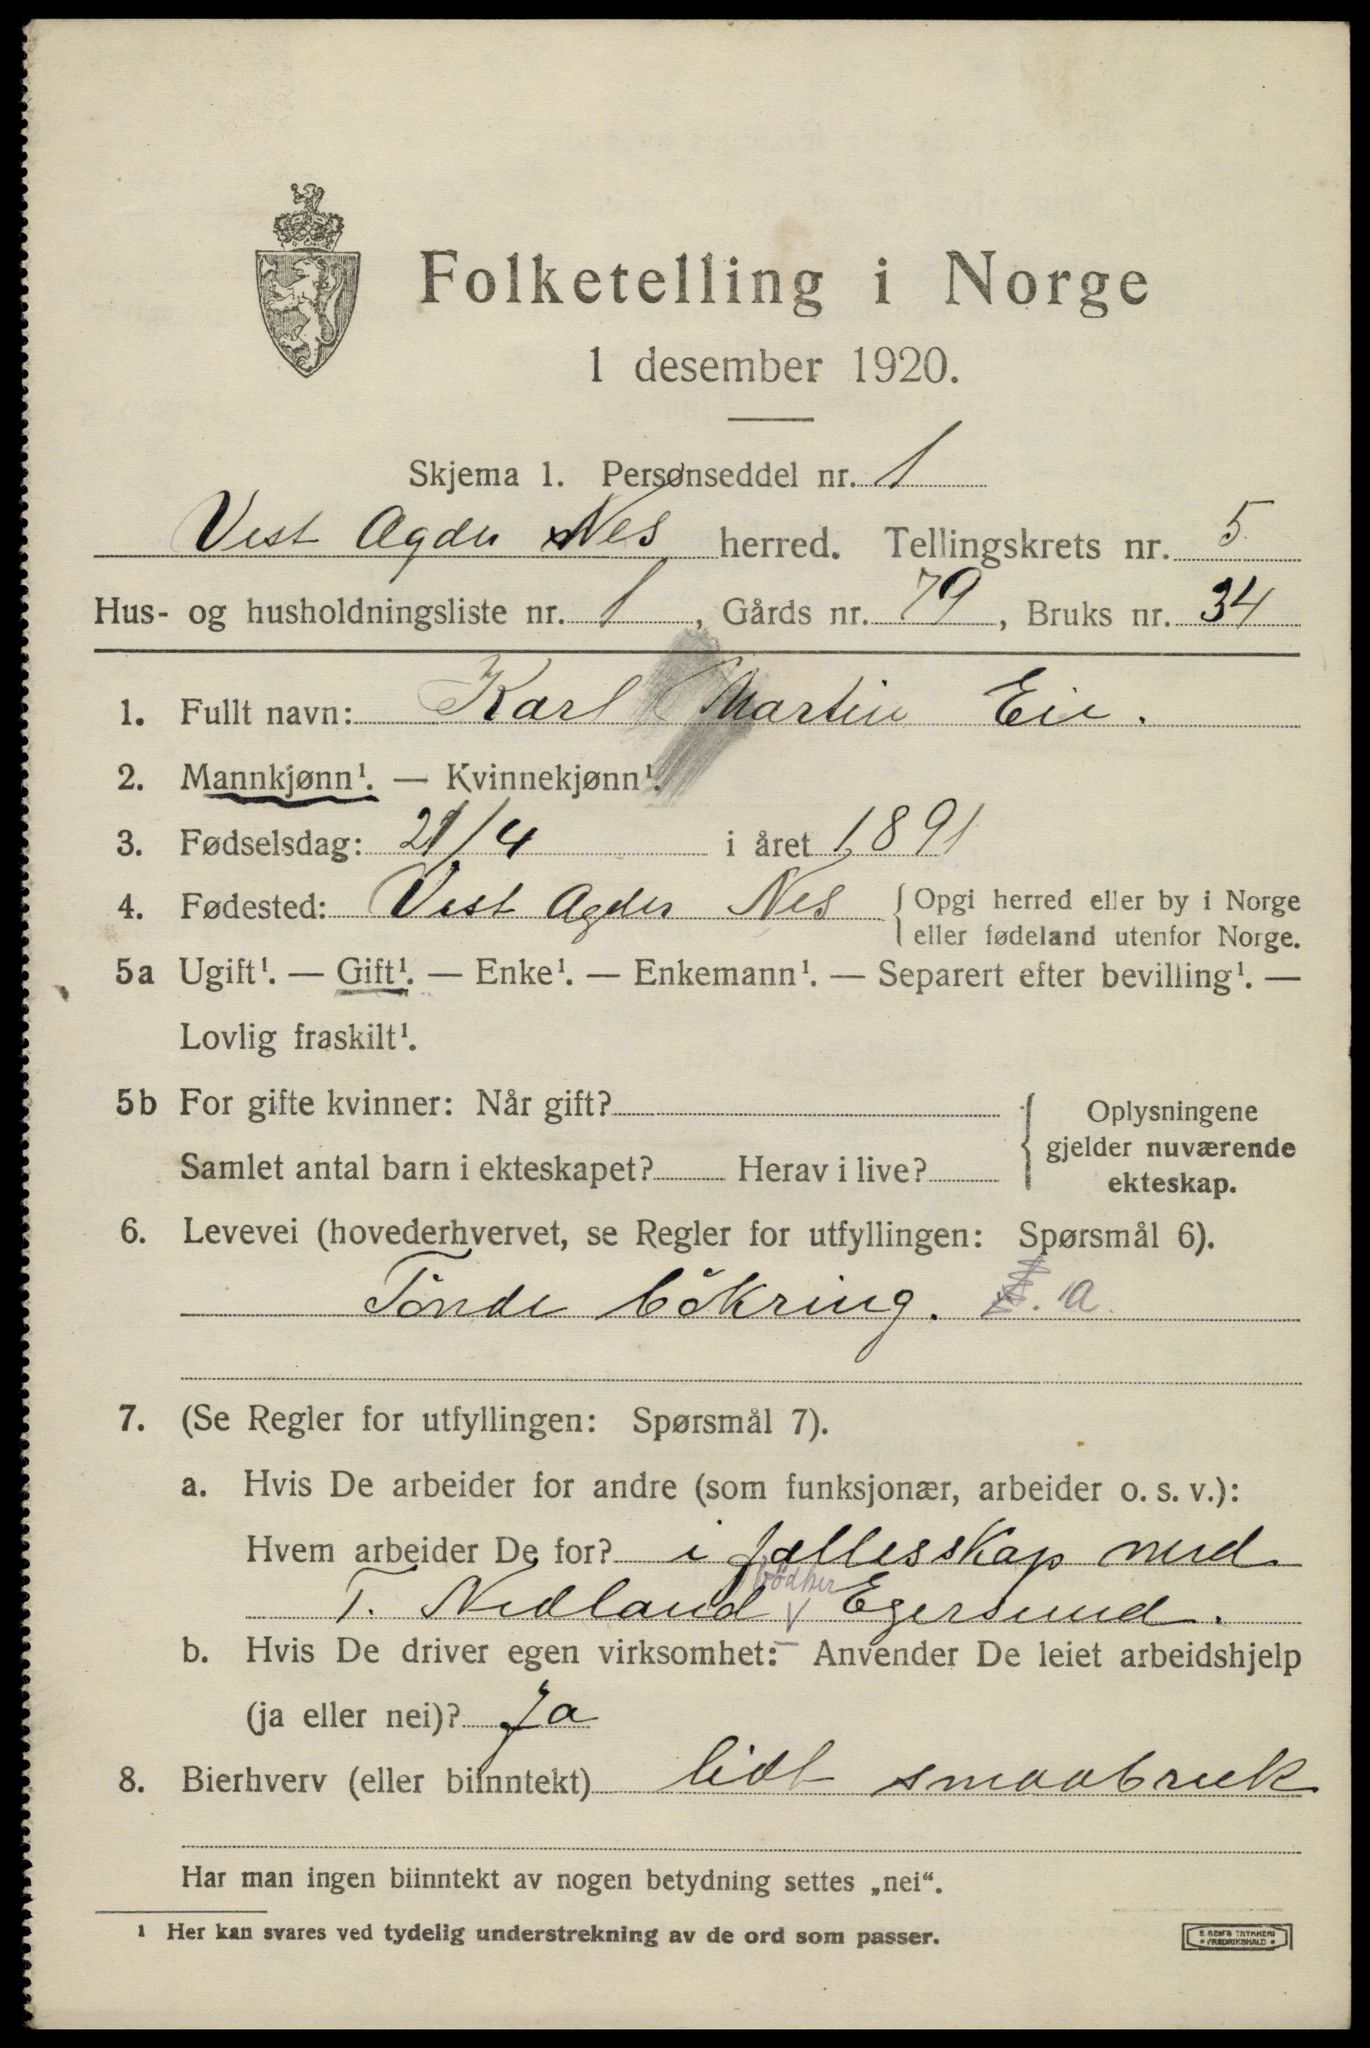 Folketelling i Norge
1 desember 1920.
Skjema 1. Personseddel nr. 1
Vest Agder Nes herred. Tellingskrets nr. 5
Hus- og husholdningsliste nr. 1, Gårds nr. 79, Bruks nr. 34
1. Fullt navn: Karl Martin Eie.
2. Mannkjønn¹. — Kvinnekjønn¹.
3. Fødselsdag: 21/4 i året 1891
4. Fødested: Vest Agder Nes { Opgi herred eller by i Norge
eller fødeland utenfor Norge.
5a Ugift¹. — Gift¹. — Enke¹. — Enkemann¹. — Separert efter bevilling¹. —
Lovlig fraskilt¹.
5b For gifte kvinner: Når gift?
Samlet antal barn i ekteskapet? Herav i live?
Oplysningene
gjelder nuværende
ekteskap.
6. Levevei (hovederhvervet, se Regler for utfyllingen: Spørsmål 6).
Tönde bökring. a.
7. (Se Regler for utfyllingen: Spørsmål 7).
a. Hvis De arbeider for andre (som funksjonær, arbeider o. s. v.):
Hvem arbeider De for? i fællesskap med
bödker
T. Nedland V Egersund.
b. Hvis De driver egen virksomhet: Anvender De leiet arbeidshjelp
(ja eller nei)? Ja
8. Bierhverv (eller biinntekt) lidt smaabruk
Har man ingen biinntekt av nogen betydning settes „nei“.
¹ Her kan svares ved tydelig understrekning av de ord som passer.
E. SEM'S TRYKKERI
FREDRIKSHALD